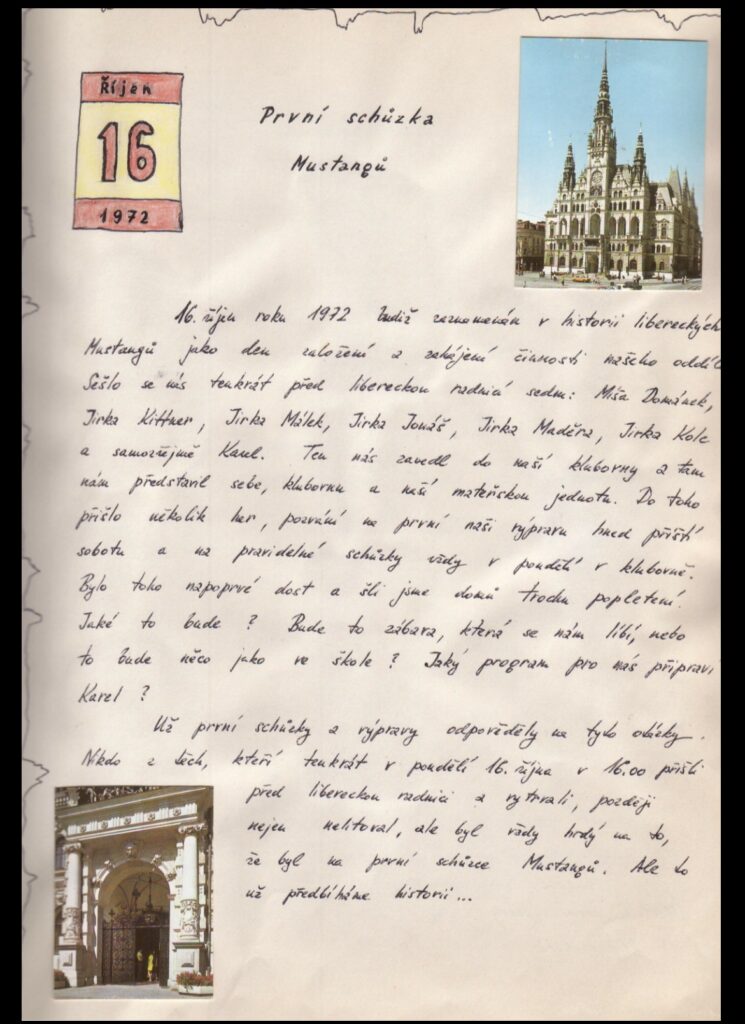 Říjen
16
1972
První schůzka
Mustangů
16. říjen roku 1972 budiž zaznamenán v historii libereckých
Mustangů jako den založení a zahájení činnosti našeho oddíl
Sešlo se nás tenkrát před libereckou radnicí sedm: Míša Dománek,
Jirka Kittner, Jirka Málek, Jirka Jonáš, Jirka Maděra, Jirka Kolc
a samozřejmě Karel. Ten nás zavedl do naší klubovny a tam
nám představil sebe, klubovnu a naši mateřskou jednotu. Do toho
přišlo několik her, pozvání na první naši výpravu hned příští
sobotu a na pravidelné schůzky vždy v pondělí v klubovně.
Bylo toho napoprvé dost a šli jsme domů trochu popletení.
Jaké to bude ? Bude to zábava, která se nám líbí, nebo
to bude něco jako ve škole ? Jaký program pro nás připraví
Karel ?
Už první schůzky a výpravy odpověděly na tyto otázky.
Nikdo z těch, kteří tenkrát v pondělí 16. října v 16.00 přišli
před libereckou radnici a vytrvali, později
nejen nelitoval, ale byl vždy hrdý na to,
že byl na první schůzce Mustangů. Ale to
už předbíháme historii...